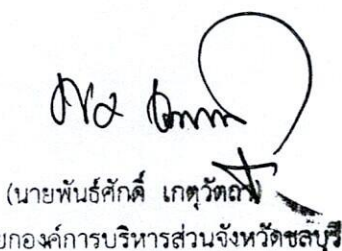 (นายพันธ์ศักดิ์ เกตุวัตถา)
ยกองค์การบริหารส่วนจังหวัดชลบุรี